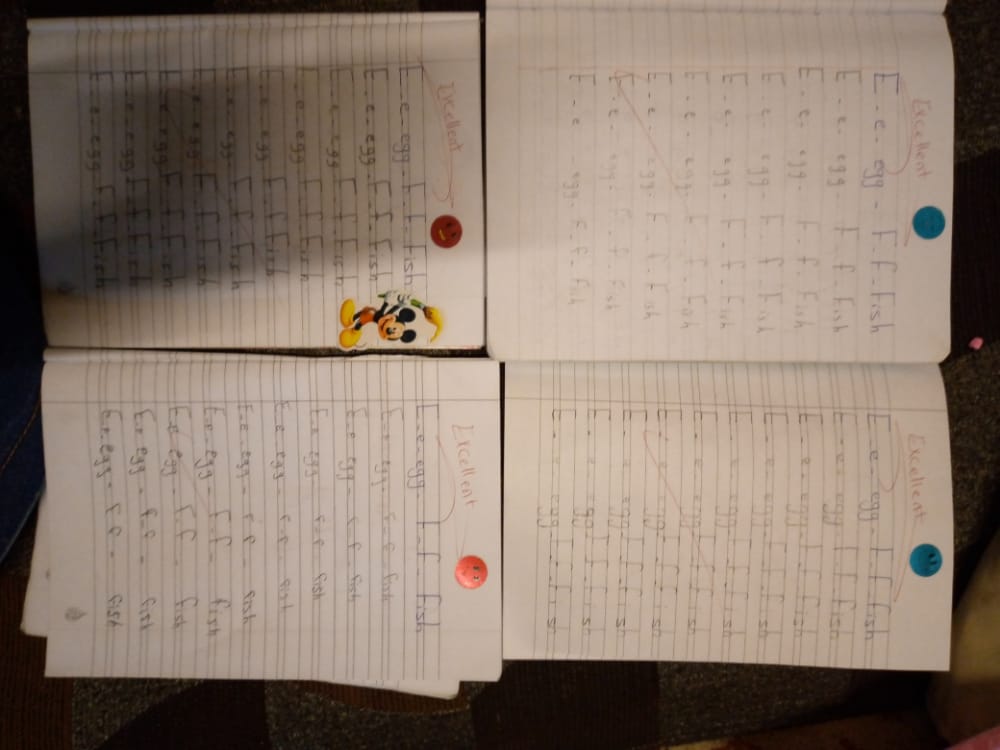 Excellent
E - e - egg - F - f - fish
E - e - egg - F - f - fish
E - e - egg - F - f - fish
E - e - egg - F - f - fish
E - e - egg - F - f - fish
E - e - egg - F - f - fish
E - e - egg - F - f - fish
E - e - egg - F - f - fish
E - e - egg - F - f - fish
Excellent
E - e - egg - F - f - fish
E - e - egg - F - f - fish
E - e - egg - F - f - fish
E - e - egg - F - f - fish
E - e - egg - F - f - fish
E - e - egg - F - f - fish
E - e - egg - F - f - fish
E - e - egg - F - f - fish
E - e - egg - F - f - fish
E - e - egg - F - f - fish
Excellent
E - e - egg - F - f - fish
E - e - egg - F - f - fish
E - e - egg - F - f - fish
E - e - egg - F - f - fish
E - e - egg - F - f - fish
E - e - egg - F - f - fish
E - e - egg - F - f - fish
E - e - egg - F - f - fish
E - e - egg - F - f - fish
E - e - egg - F - f - fish
Excellent
E - e - egg - F - f - fish
E - e - egg - F - f - fish
E - e - egg - F - f - fish
E - e - egg - F - f - fish
E - e - egg - F - f - fish
E - e - egg - F - f - fish
E - e - egg - F - f - fish
E - e - egg - F - f - fish
E - e - egg - F - f - fish
E - e - egg - F - f - fish